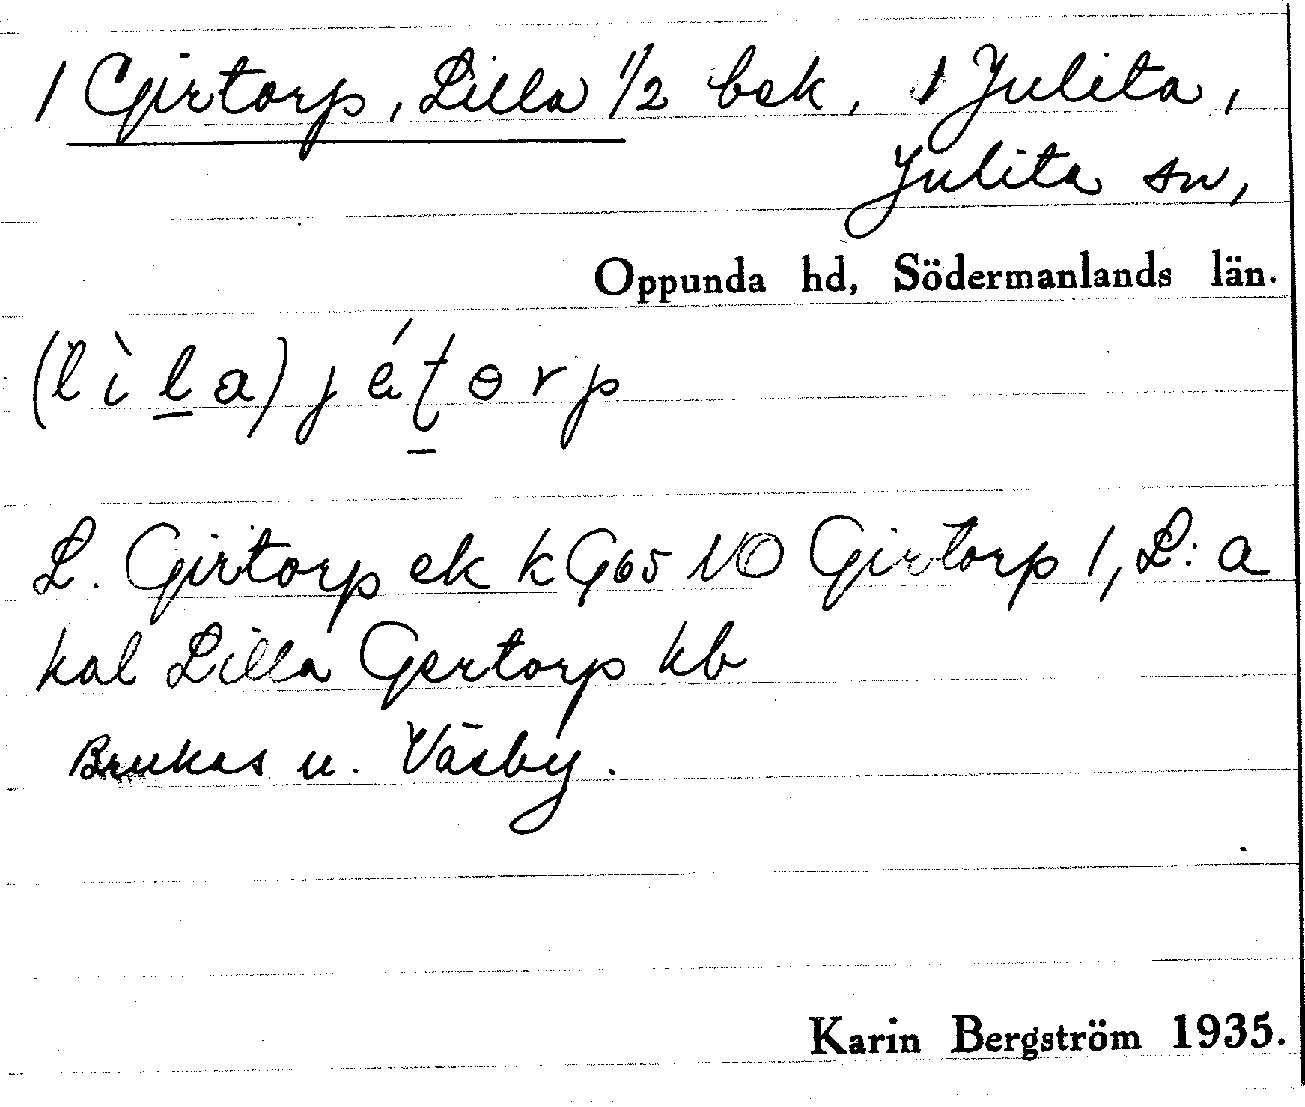 1 Girtorp, Lilla 1/2 bek, 1 Julita,
Julita sn,
Oppunda hd, Södermanlands län.
(lìla) jétorp
L. Girtorp ek k G65 NO Girtorp 1, L:a
kal Lilla Gertorp kb
Brukas u. Väsby.
Karin Bergström 1935.